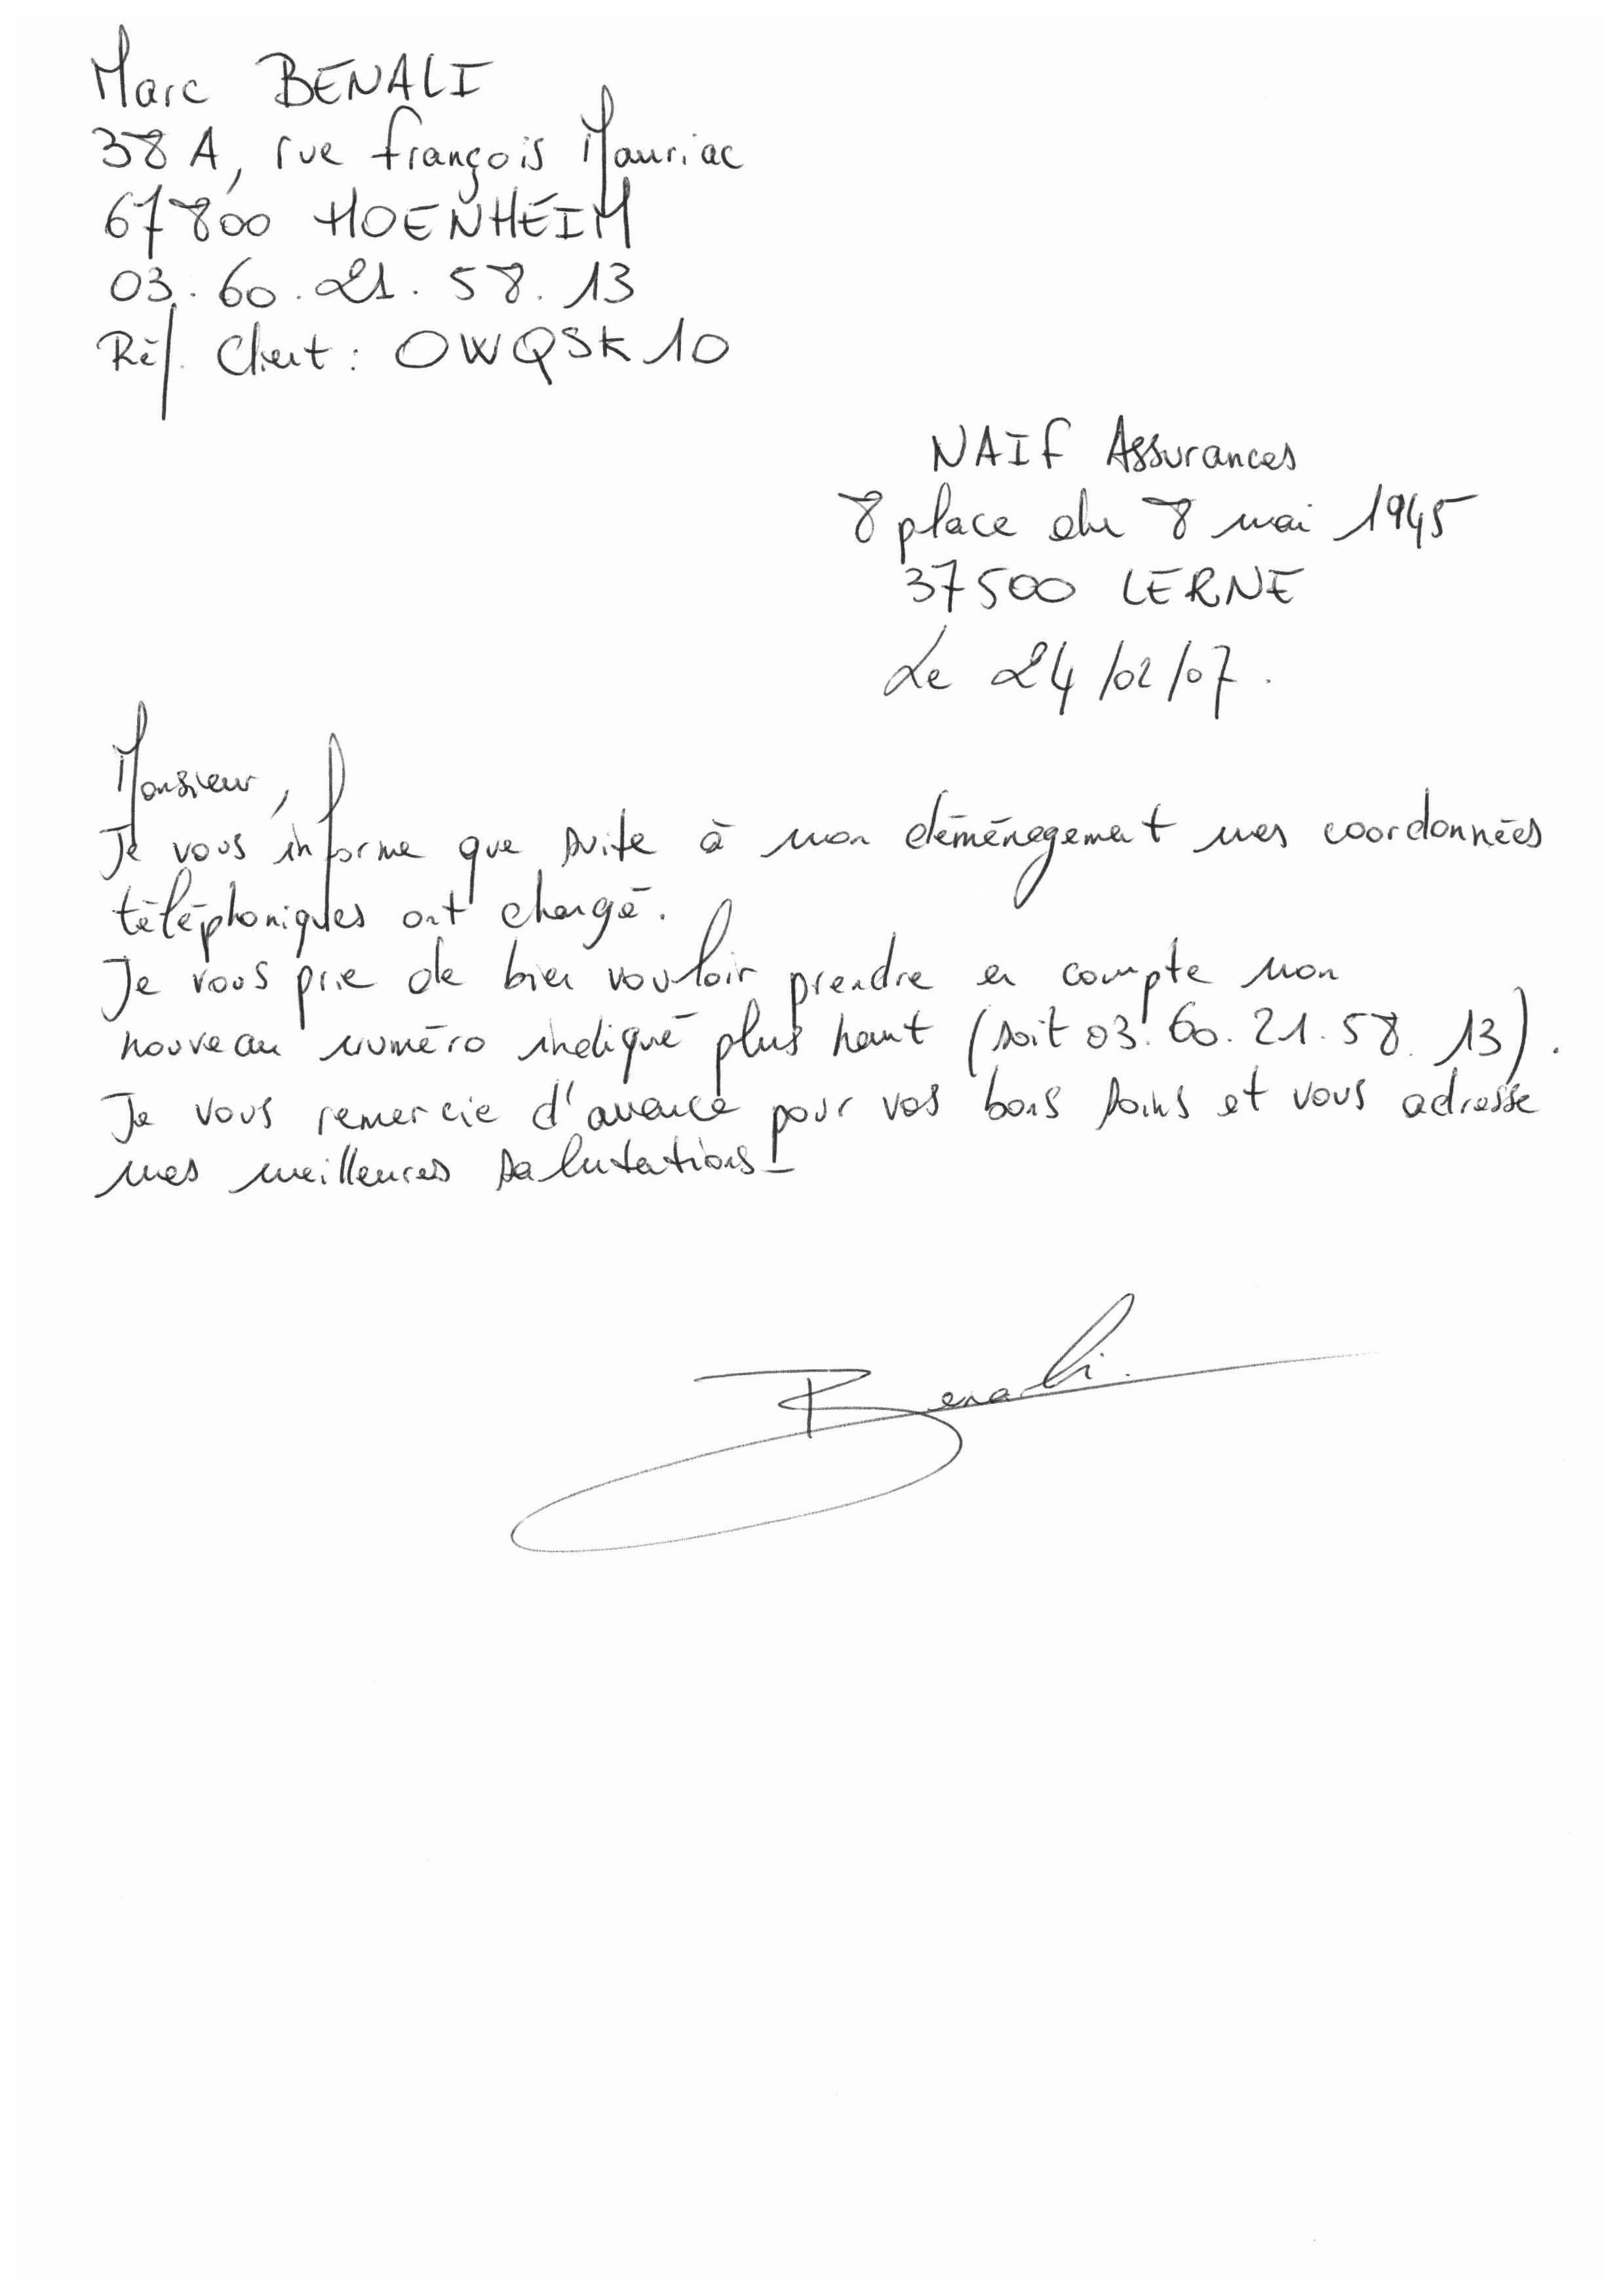 Marc BENALI
38 A, rue François Mauriac
67800 HOENHEIM
03.60.21.58.13
Réf. Client : OWQSK10
NAIF Assurances
8 place du 8 mai 1945
37500 LERNE
Le 24/02/07.
Monsieur,
Je vous informe que suite à mon déménagement mes coordonnées
téléphoniques ont changé.
Je vous prie de bien vouloir prendre en compte mon
nouveau numéro indiqué plus haut (soit 03.60.21.58.13).
Je vous remercie d'avance pour vos bons soins et vous adresse
mes meilleures salutations_
Benali.